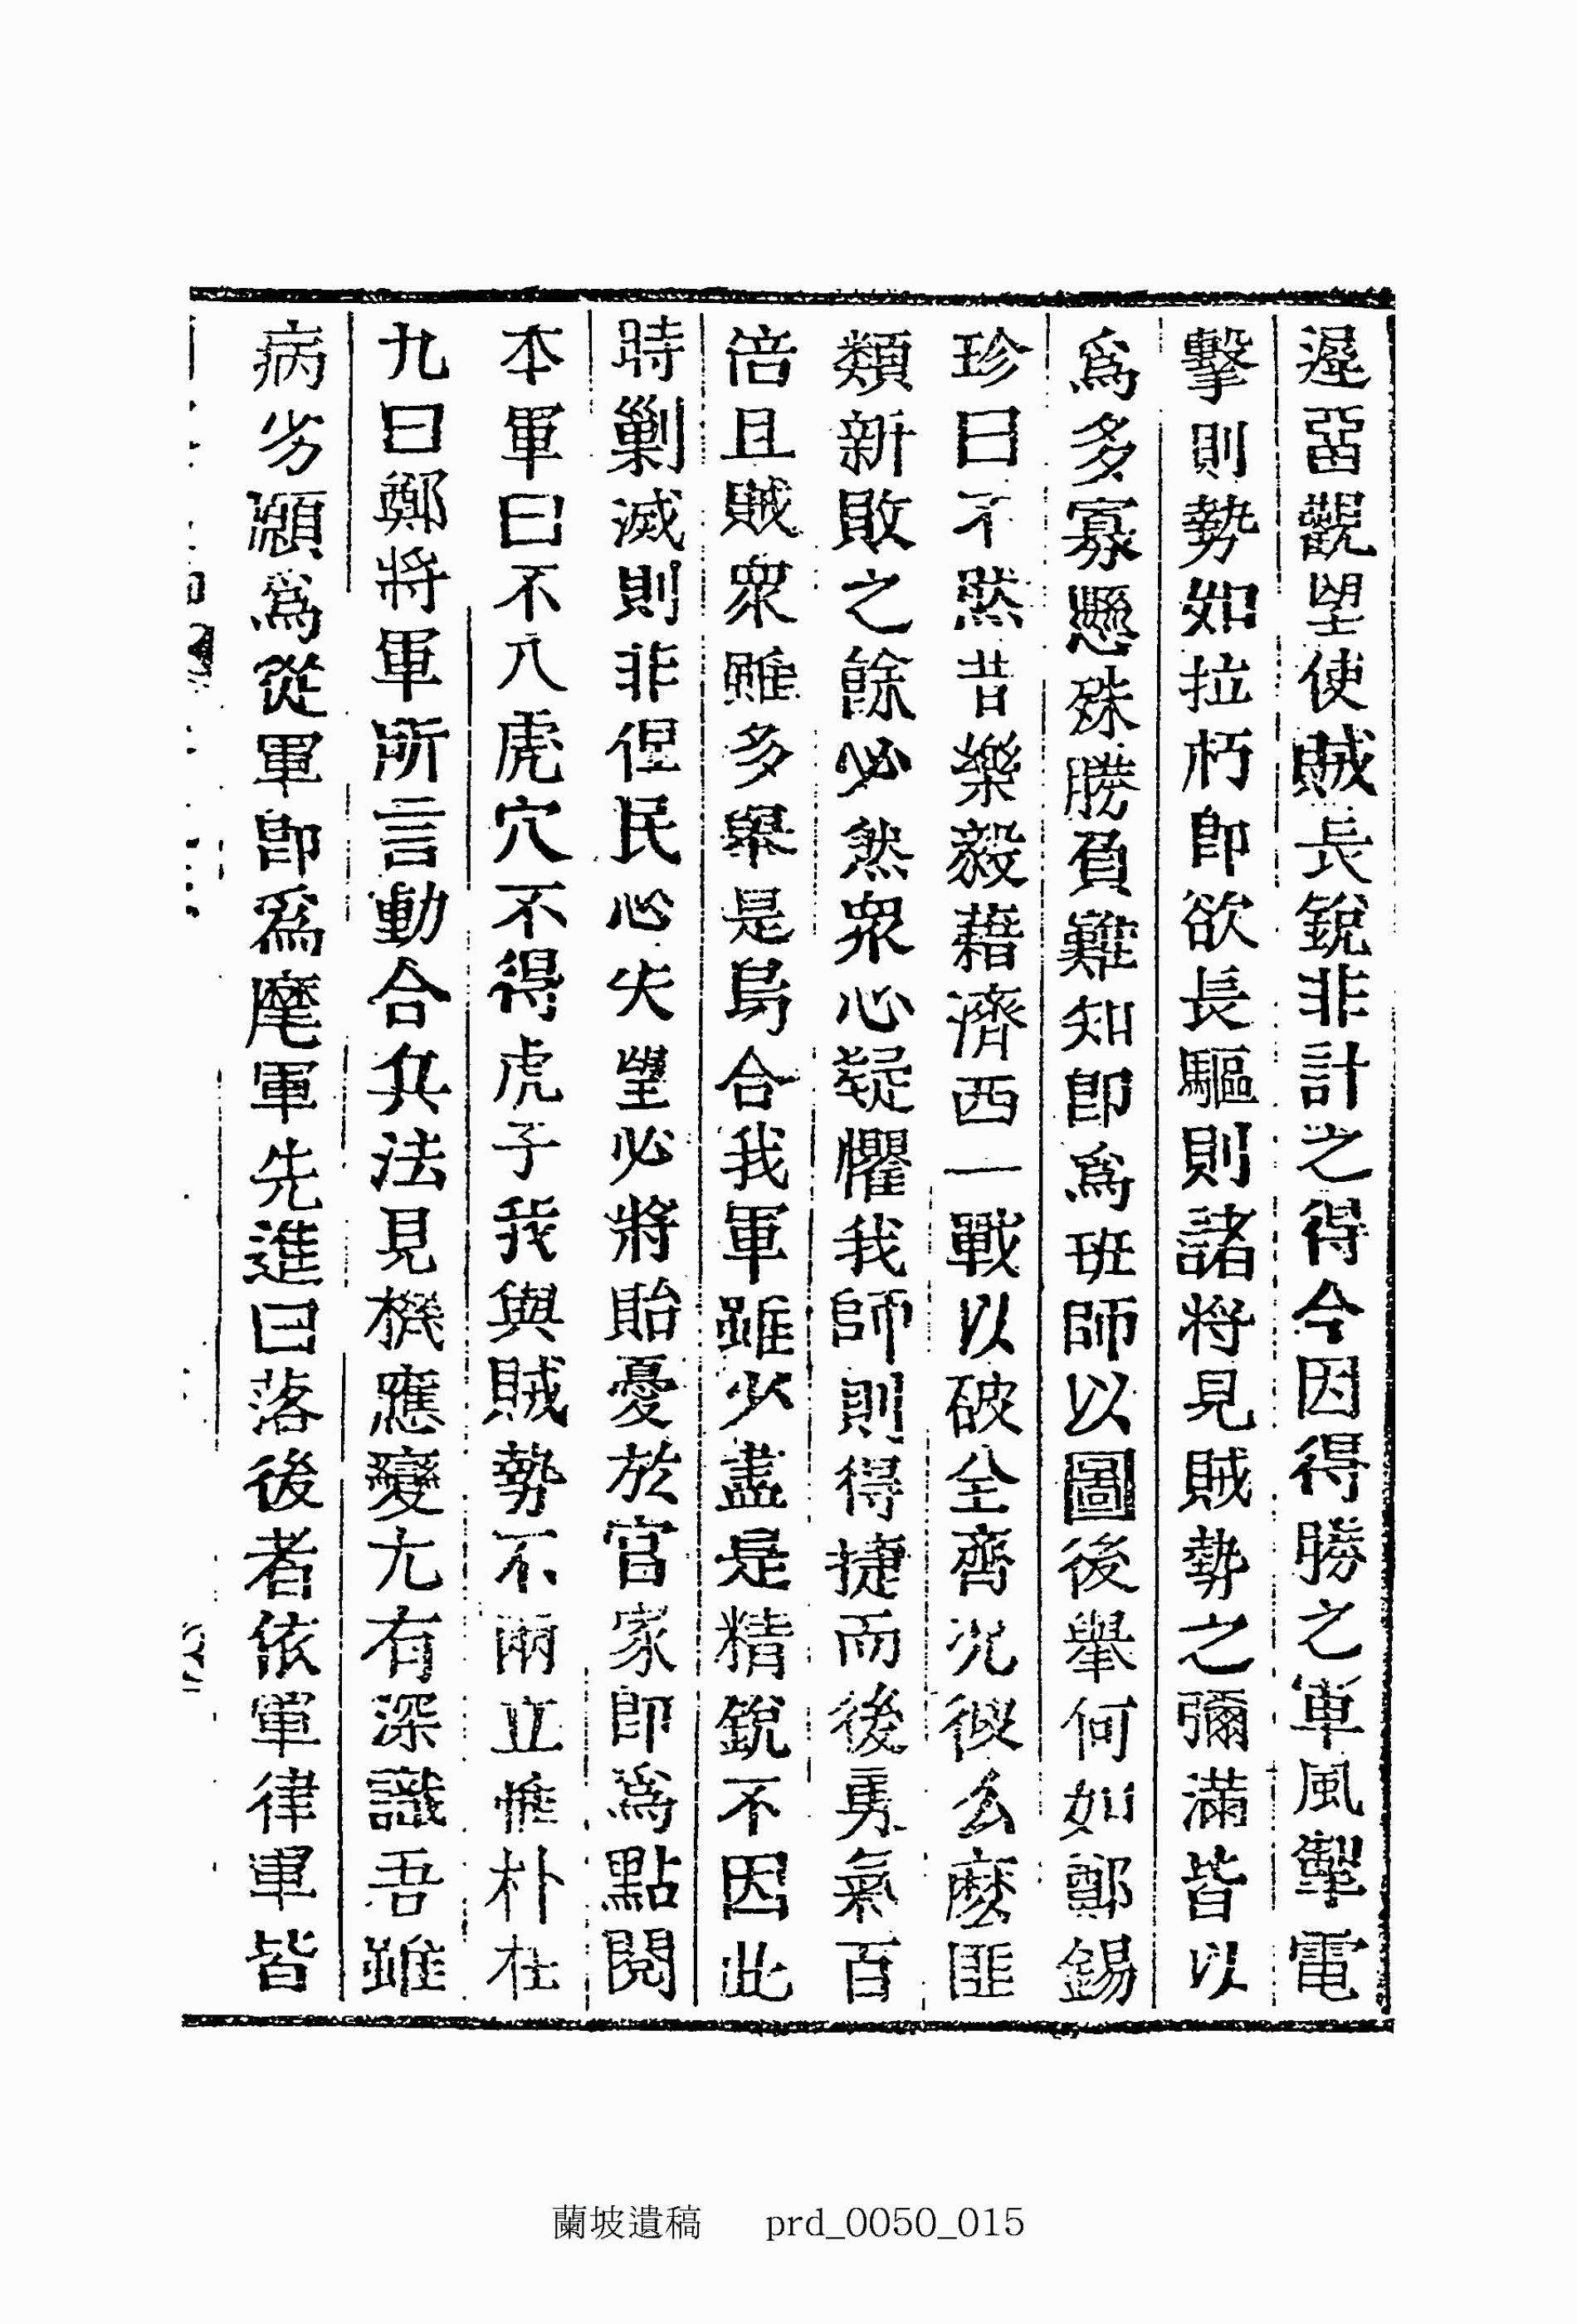 遲畱觀望使賊長銳非計之得今因得勝之軍風擊電
擊則勢如拉朽卽欲長驅則諸將見賊勢之彌滿皆以
爲多寡懸殊勝負難知卽爲班師以圖後擧何如鄭錫
珍曰不然昔樂毅藉濟西一戰以破全齊况彼么麽匪
類新敗之餘必然衆心疑懼我師則得捷而後勇氣百
倍且賊衆雖多擧是烏合我軍雖少盡是精銳不因此
時剿滅則非但民心失望必將貽憂於官家卽爲點閱
本軍曰不入虎穴不得虎子我與賊勢不兩立惟朴杜
九曰鄭將軍所言動合兵法見機應變尤有深識吾雖
病劣願爲從軍卽爲麾軍先進曰落後者依軍律軍皆
蘭坡遺稿 prd_0050_015